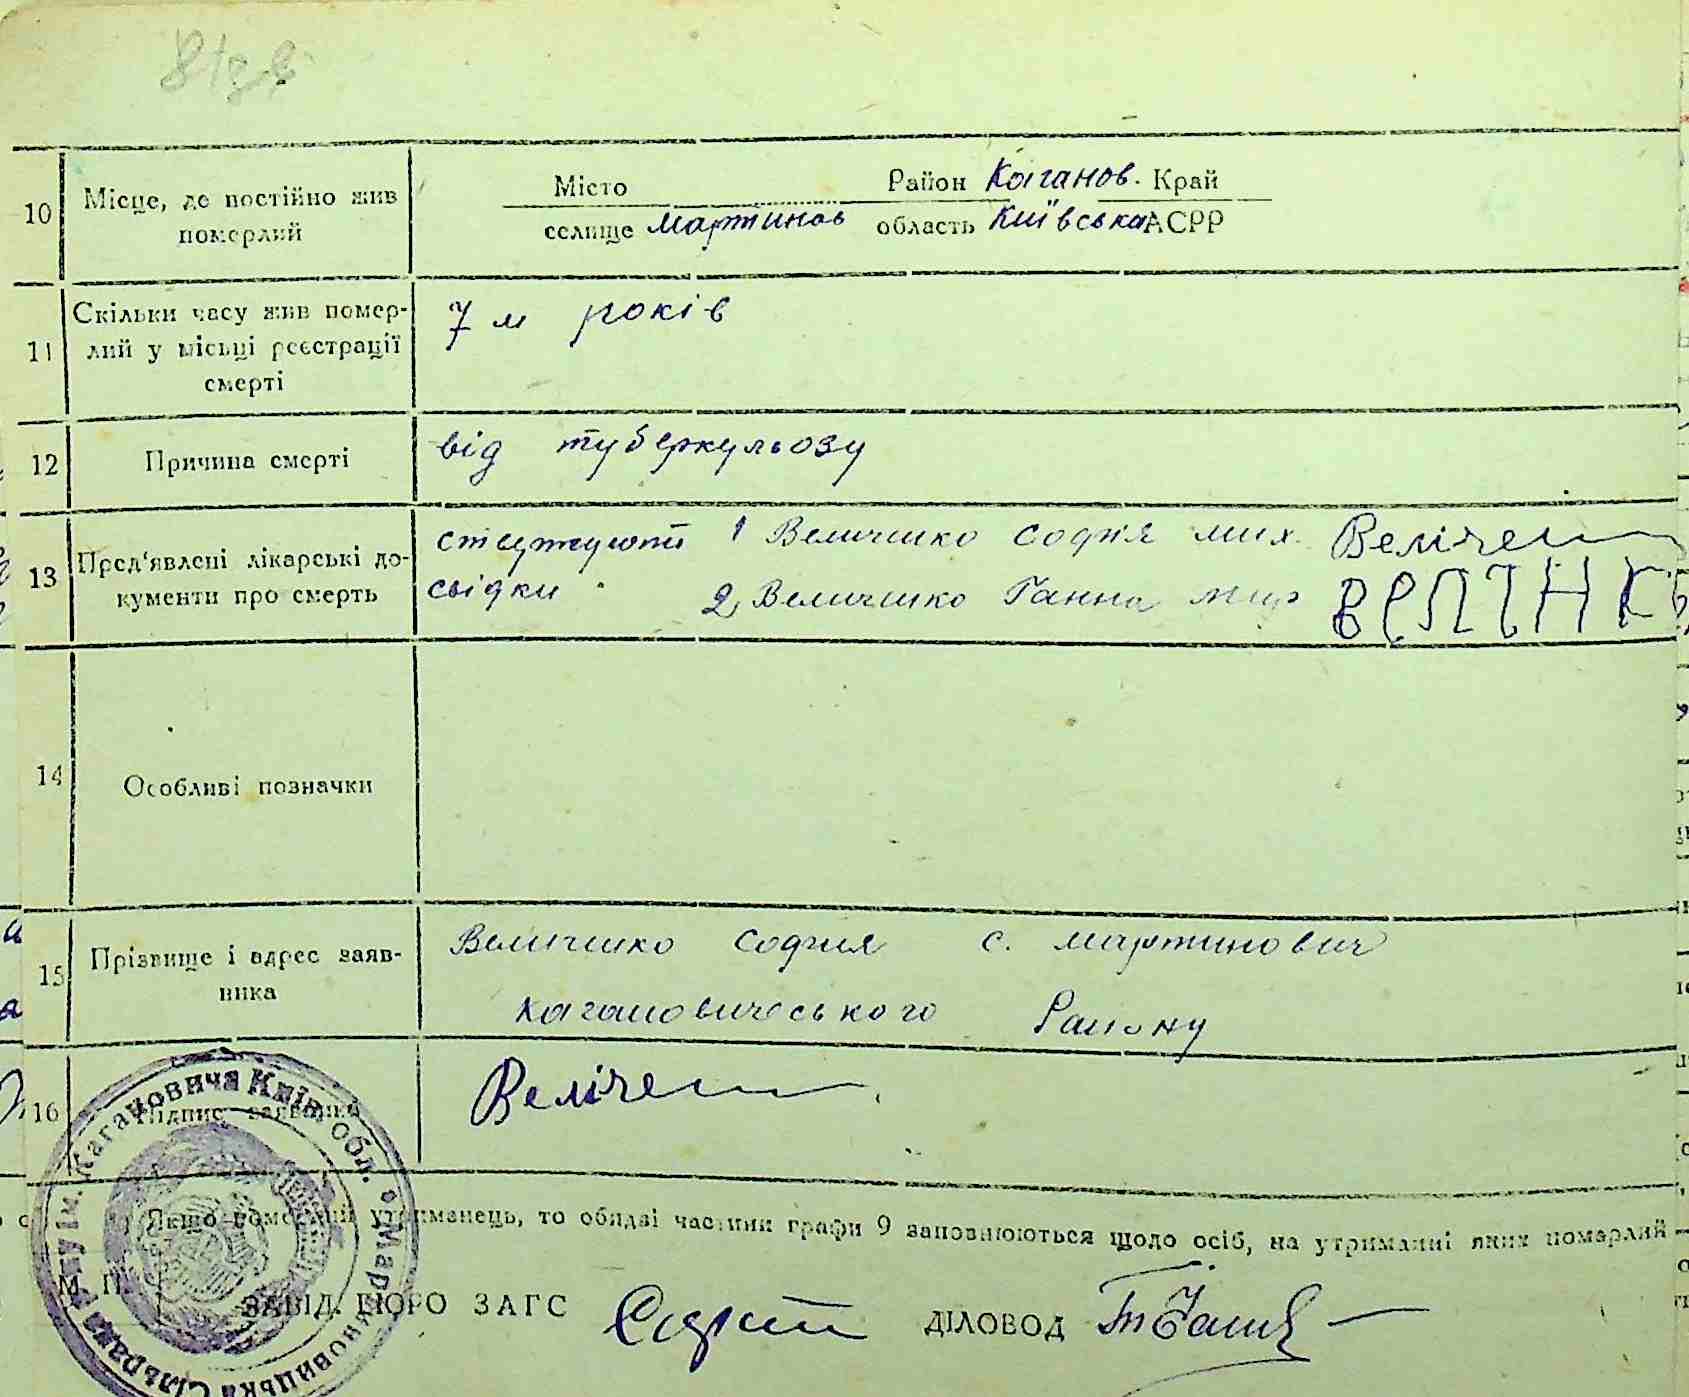 10 Місце, де постійно жив померлий
Місто Район Каганов. Край
селище Мартинов область Київська АСРР
11 Скільки часу жив помер-
лий у місьці реєстрації
смерті
7 м років
12 Причина смерті
від туберкульозу
13 Пред'явлені лікарські до-
кументи про смерть
стверджують 1 Величико София мих. Веліче
свідки 2, Величико Ганна
14 Особливі позначки
15 Прізвище і адрес заяв-
вика
Величико София с. Мартинович
Кагановичеського Району
16 Підпис заявника
Веліче
Якщо померлий утриманець, то обидві частини графи 9 заповнюються щодо осіб, на утриманні яких померлий
М. П. ЗАВІД. БЮРО ЗАГС ДІЛОВОД
Мартиновицька Сільрада р-ну ім. Кагановича Київ. обл.